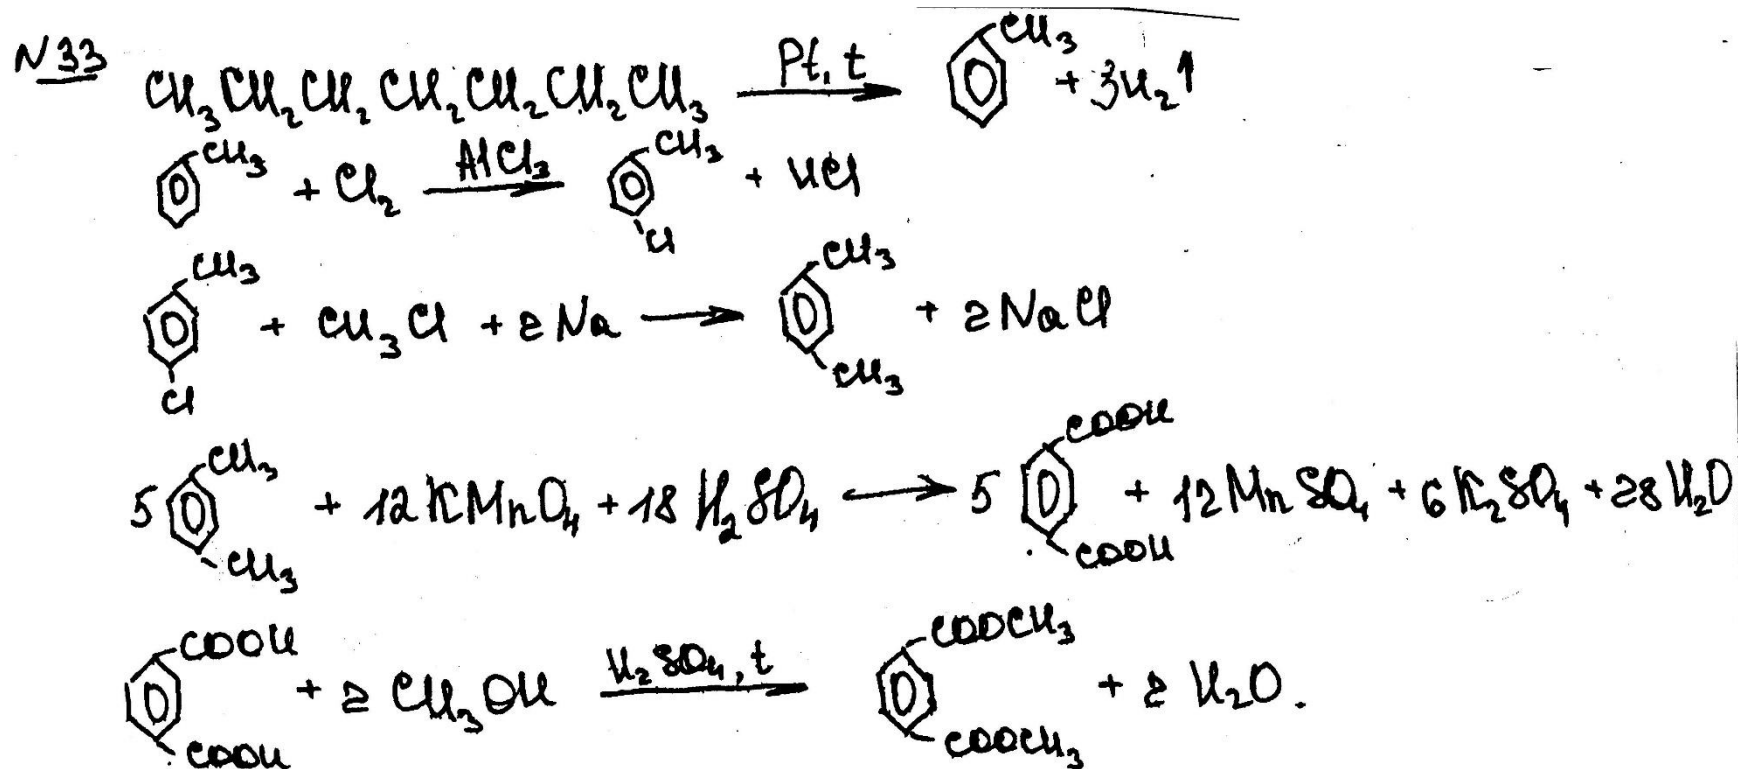 N33
CH₃CH₂CH₂CH₂CH₂CH₂CH₃ —Pt, t→ CH₃ + 3H₂↑
CH₃ + Cl₂ —AlCl₃→ CH₃ Cl + HCl
CH₃ Cl + CH₃Cl + 2Na → CH₃ CH₃ + 2NaCl
5 CH₃ CH₃ + 12KMnO₄ + 18H₂SO₄ → 5 COOH COOH + 12MnSO₄ + 6K₂SO₄ + 28H₂O
COOH COOH + 2CH₃OH —H₂SO₄, t→ COOCH₃ COOCH₃ + 2H₂O.